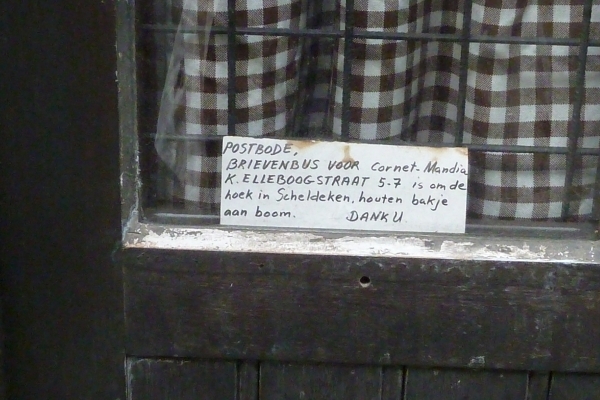 POSTBODE,
BRIEVENBUS VOOR Cornet-Mandia
K. ELLEBOOGSTRAAT 5-7 is om de
hoek in Scheldeken, houten bakje
aan boom. DANK U